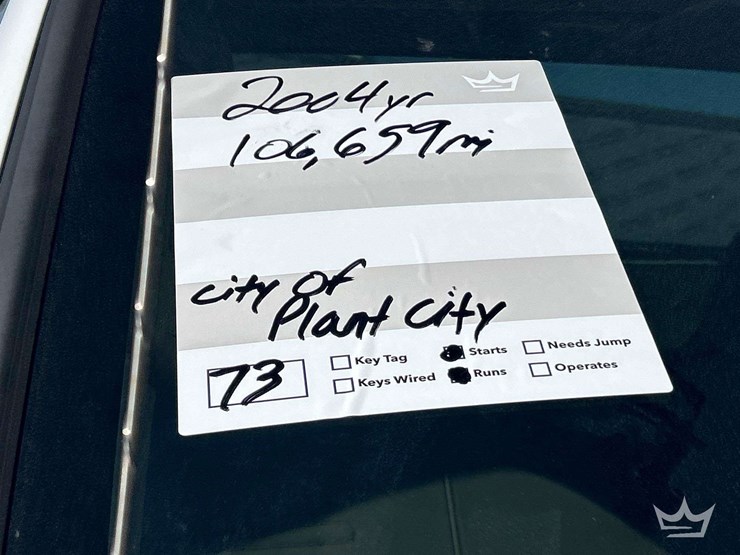 2004yr
106,659mi
city of
Plant City
73
Key Tag
Starts
Needs Jump
Keys Wired
Runs
Operates